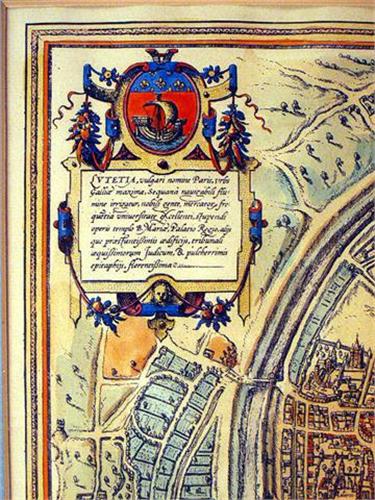 LVTETIA, vulgari nomine Paris, vrbs
Galliæ maxima, Sequana navigabili flu,
mine irrigatur, nobili gente, mercatoꝝ fre
quētia, vniuersitate excellenti, stupendi
operis templo B. Mariæ, Palatio Regio, alijs
que præstantissimis ædificijs, tribunali
æquissimorum Judicum, & pulcherrimis
epitaphijs, florentissima